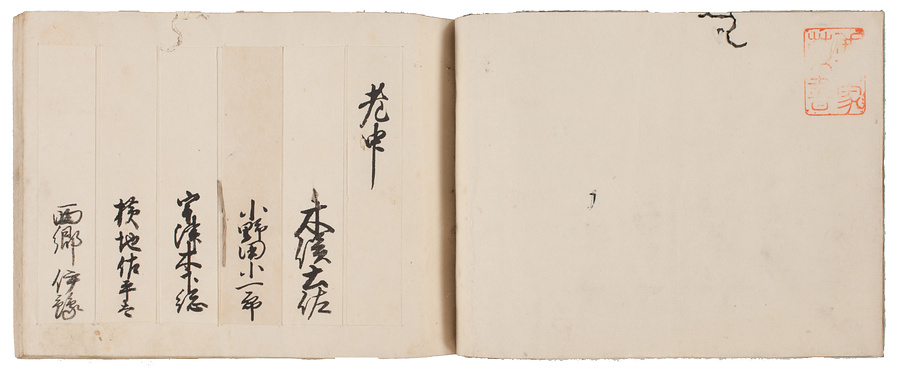 老中
木俣土佐
小野田小一郎
宇津木下総
横地佐平太
西郷伊豫